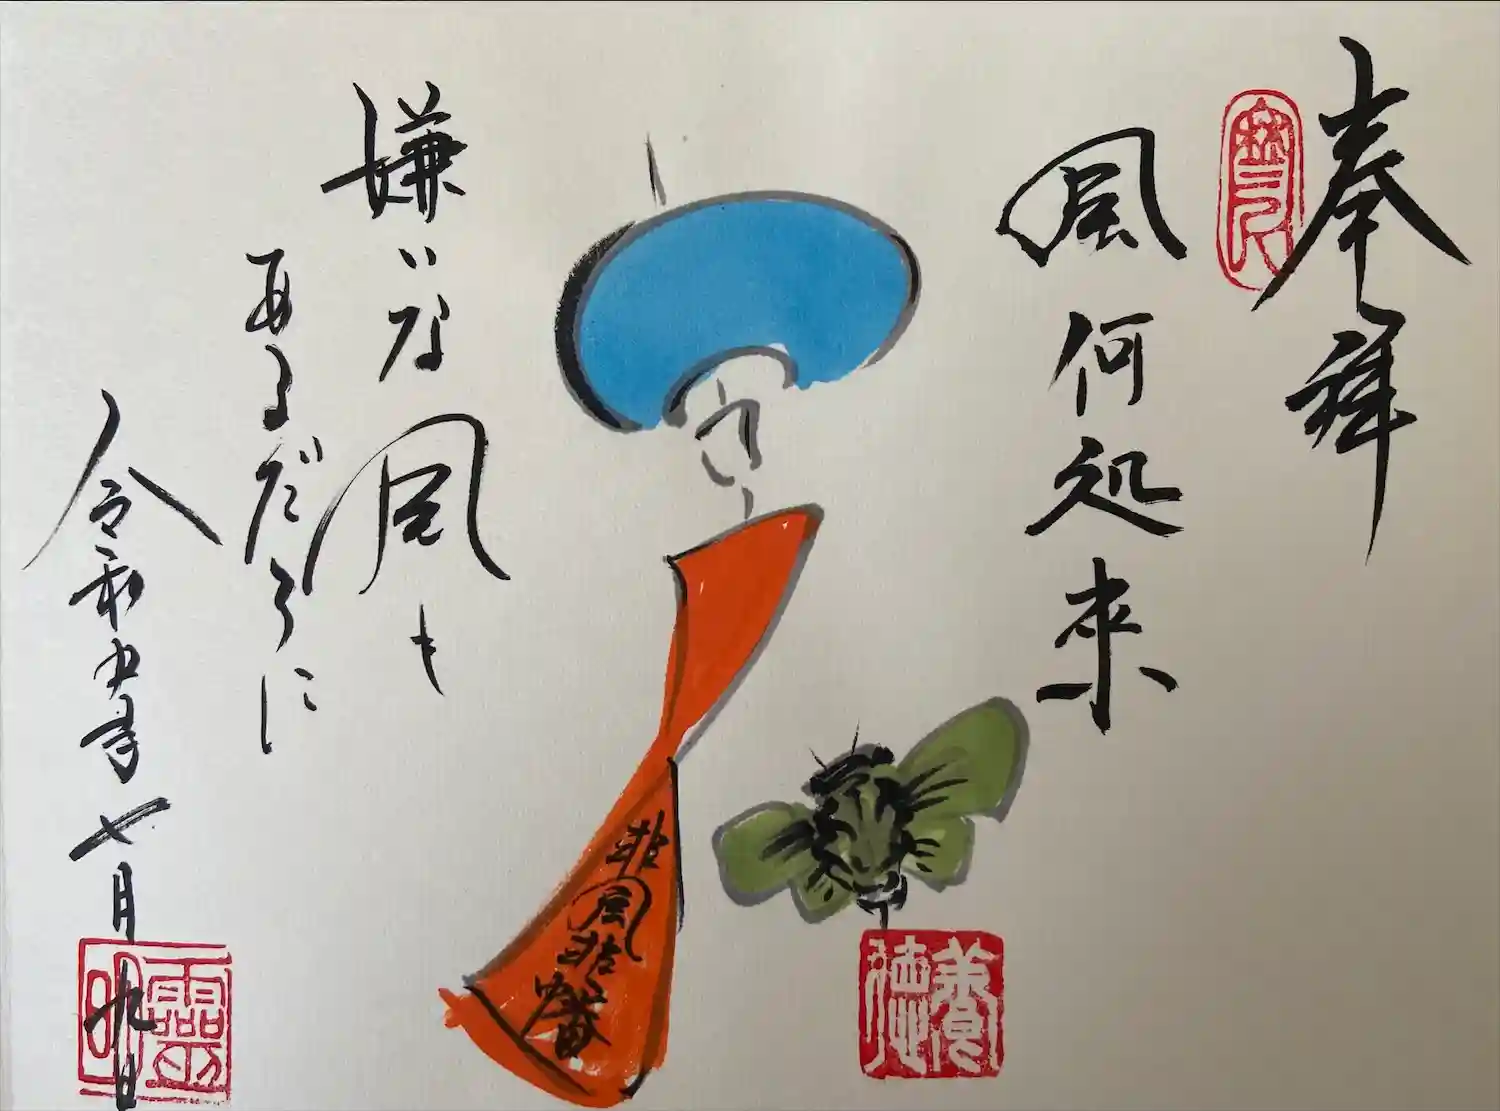 奉拝
風何処来
非風非幡
嫌いな風も
あるだろに
令和五年七月九日
養徳